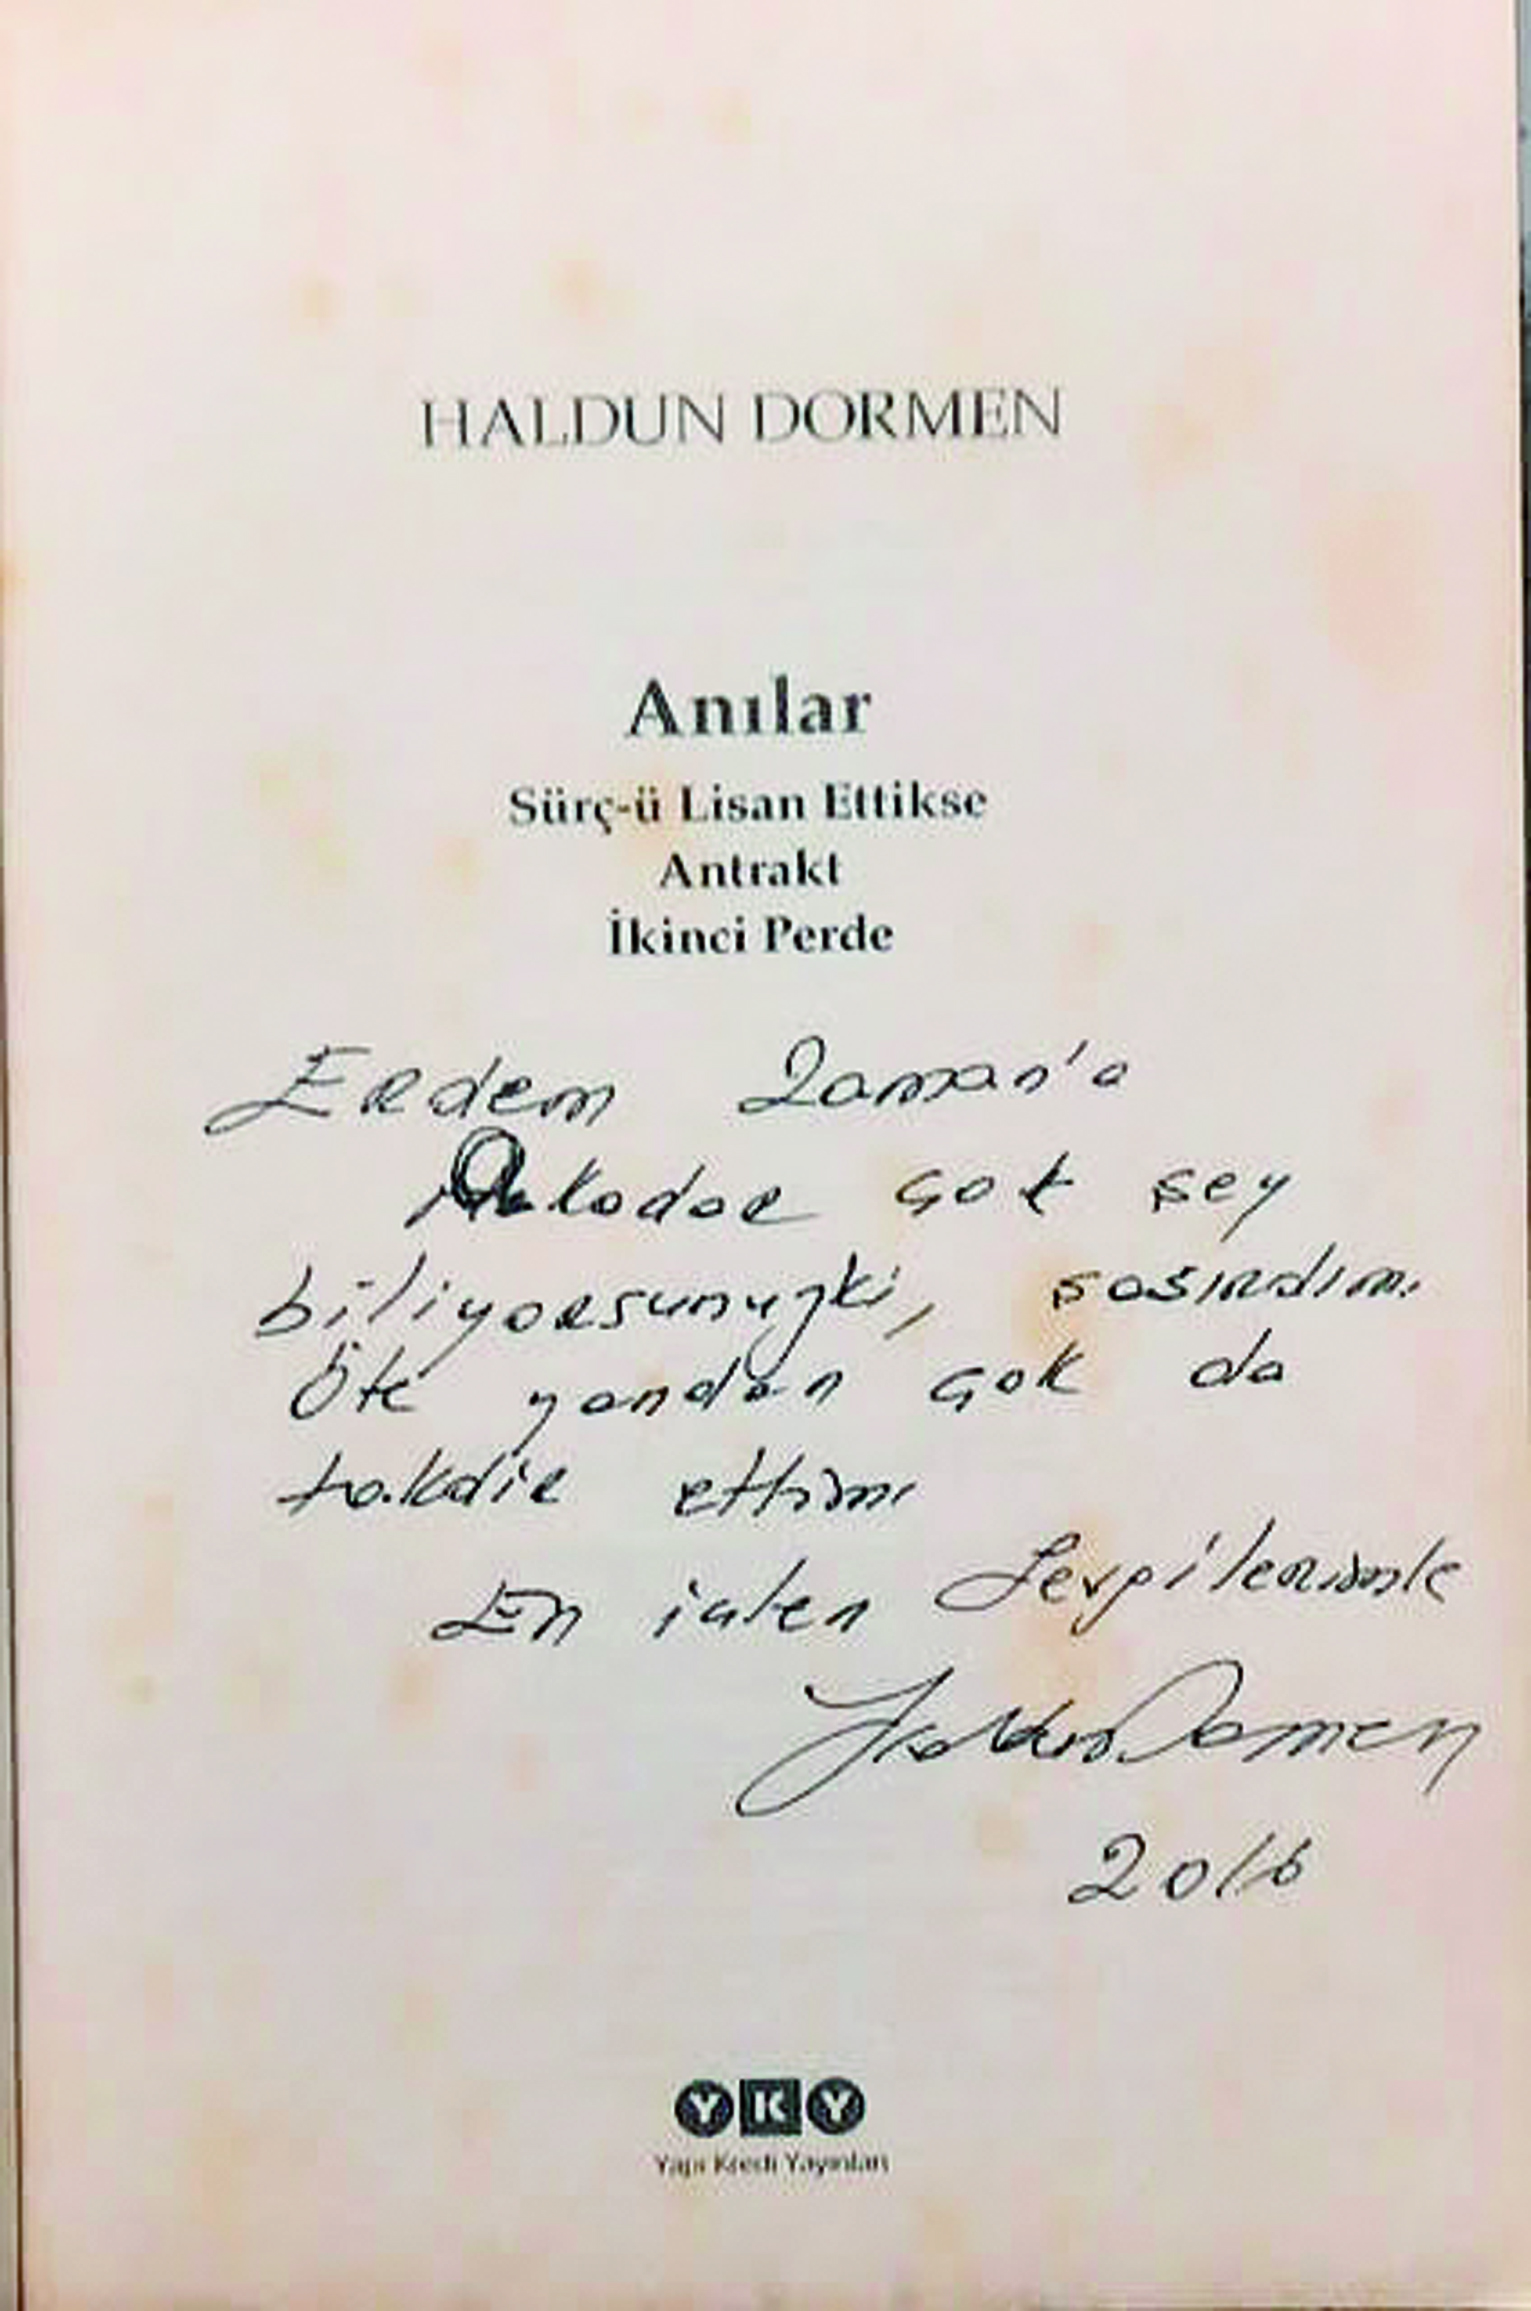 HALDUN DORMEN
Anılar
Sürç-ü Lisan Ettikse
Antrakt
İkinci Perde
Erdem Zaman'a
O kadar çok şey
biliyorsunuzki, şaşırdım.
Öte yandan çok da
takdir ettim
En içten Sevgilerimle
Haldun Dormen
2016
YKY
Yapı Kredi Yayınları